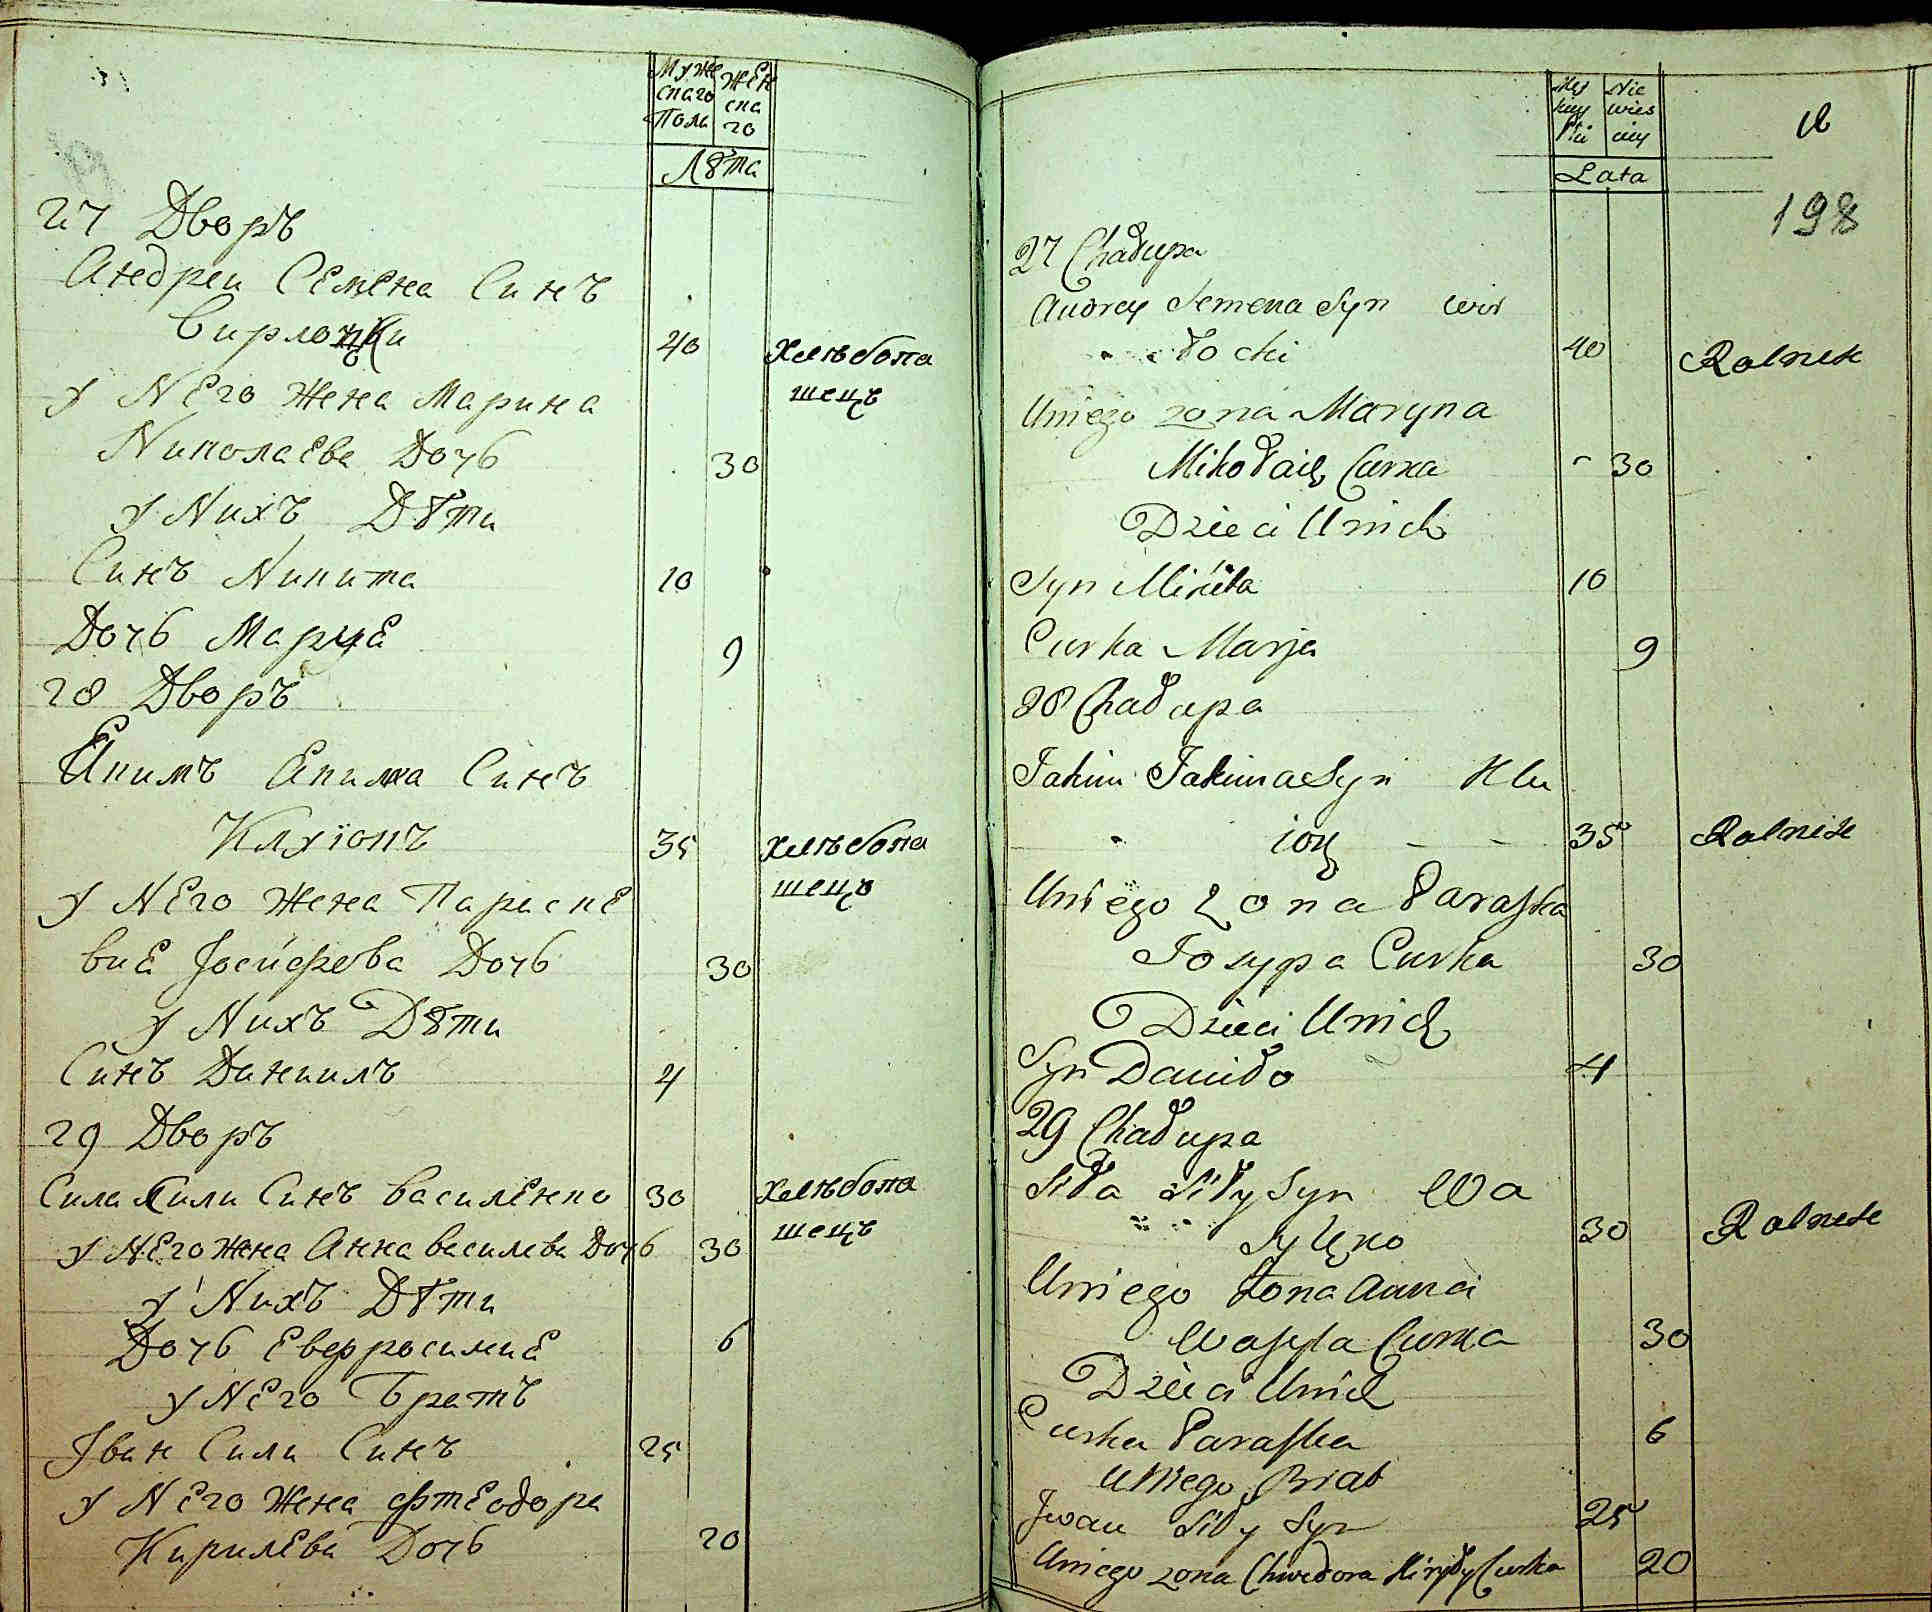 Муже
скаго
Пола
Жен
ска
го
Лѣта
27 Дворъ
Андреи Семена Синъ
Вирлоцки 40 хлѣбопа
шецъ
у Него Жена Марина
Николаева Дочь 30
у Нихъ Дѣти
Синъ Никита 10
Дочь Мария 9
28 Дворъ
Якимъ Акима Синъ
Клуіокъ 35 хлѣбопа
шецъ
у Него Жена Параске
виа Іосифова Дочь 30
у Нихъ Дѣти
Синъ Даниилъ 4
29 Дворъ
Сила Сили Синъ Василенко 30 хлѣбопа
шецъ
у Него жена Анна Василева Дочь 30
у Нихъ Дѣти
Дочь Евфросиниа 6
у Него Братъ
Іван Сили Синъ 25
у Него Жена Фтеодора
Кирилева Дочь 20
Nie
wies
ciey
Lata
198
27 Chałupa
Andrey Semena Syn Wir
łocki 40 Rolnik
Uniego zona Maryna
Mikołaiy Curka 30
Dzieci Unich
Syn Mikita 10
Curka Marja 9
28 Chałupa
Jakim Jakima Syn Klu
ioy 35 Rolnik
Uniego Zona Paraska
Josypa Curka 30
Dzieci Unich
Syn Daniło 4
29 Chałupa
Siła Siły Syn Wa
sylyko 30 Rolnik
Uniego Zona Anna
Wasyla Curka 30
Dzieci Unich
Curka Paraska 6
Uniego Brat
Jwan Siły Syn 25
Uniego zona Chwedora Kiryły Curka 20